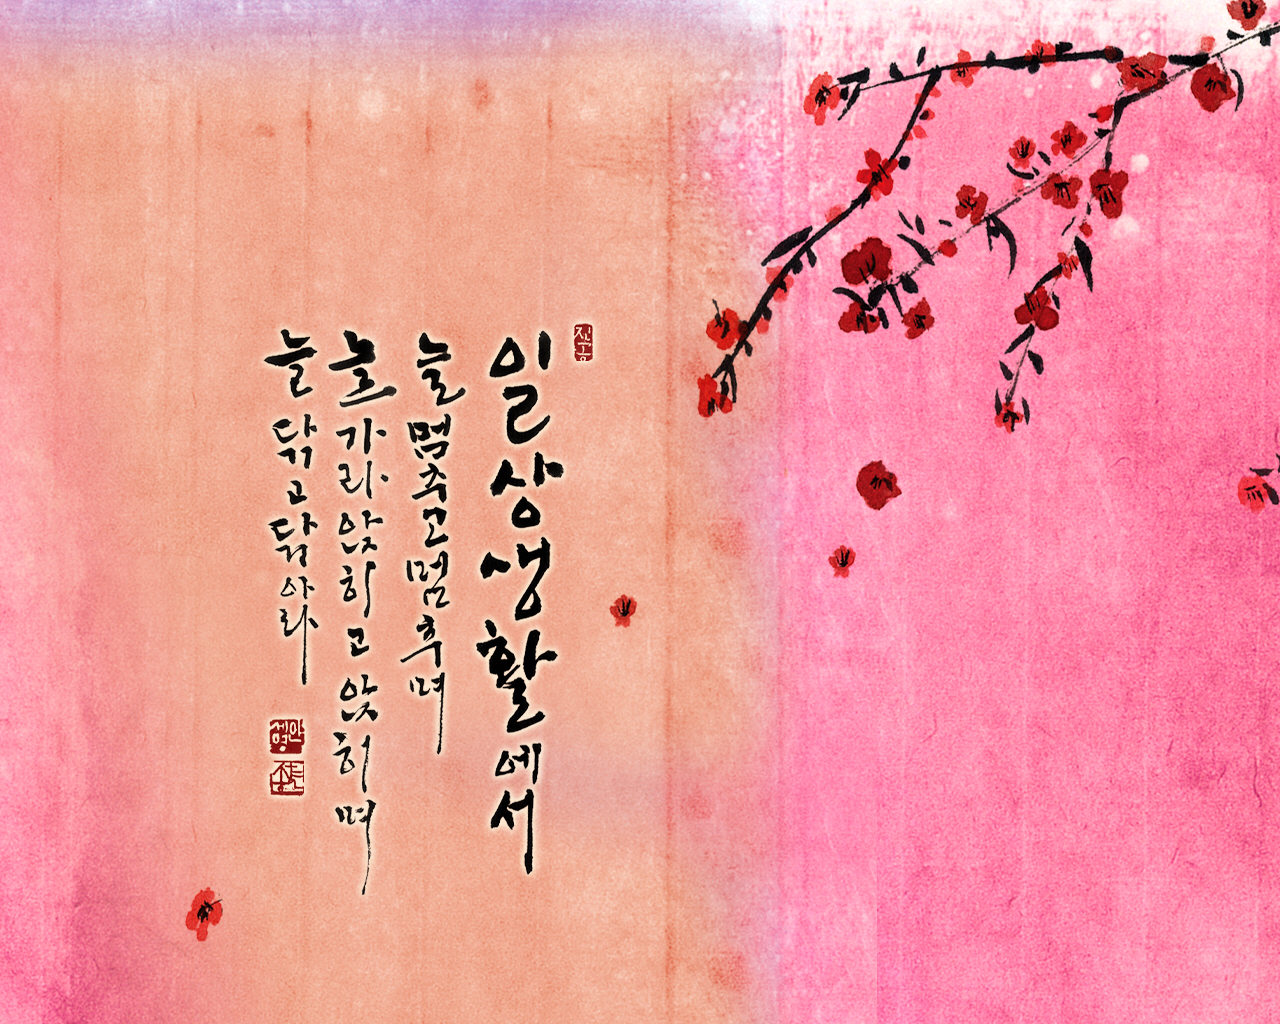 일상생활에서
늘 멈추고 멈추며
늘 가라앉히고 앉히며
늘 닦고 닦아라